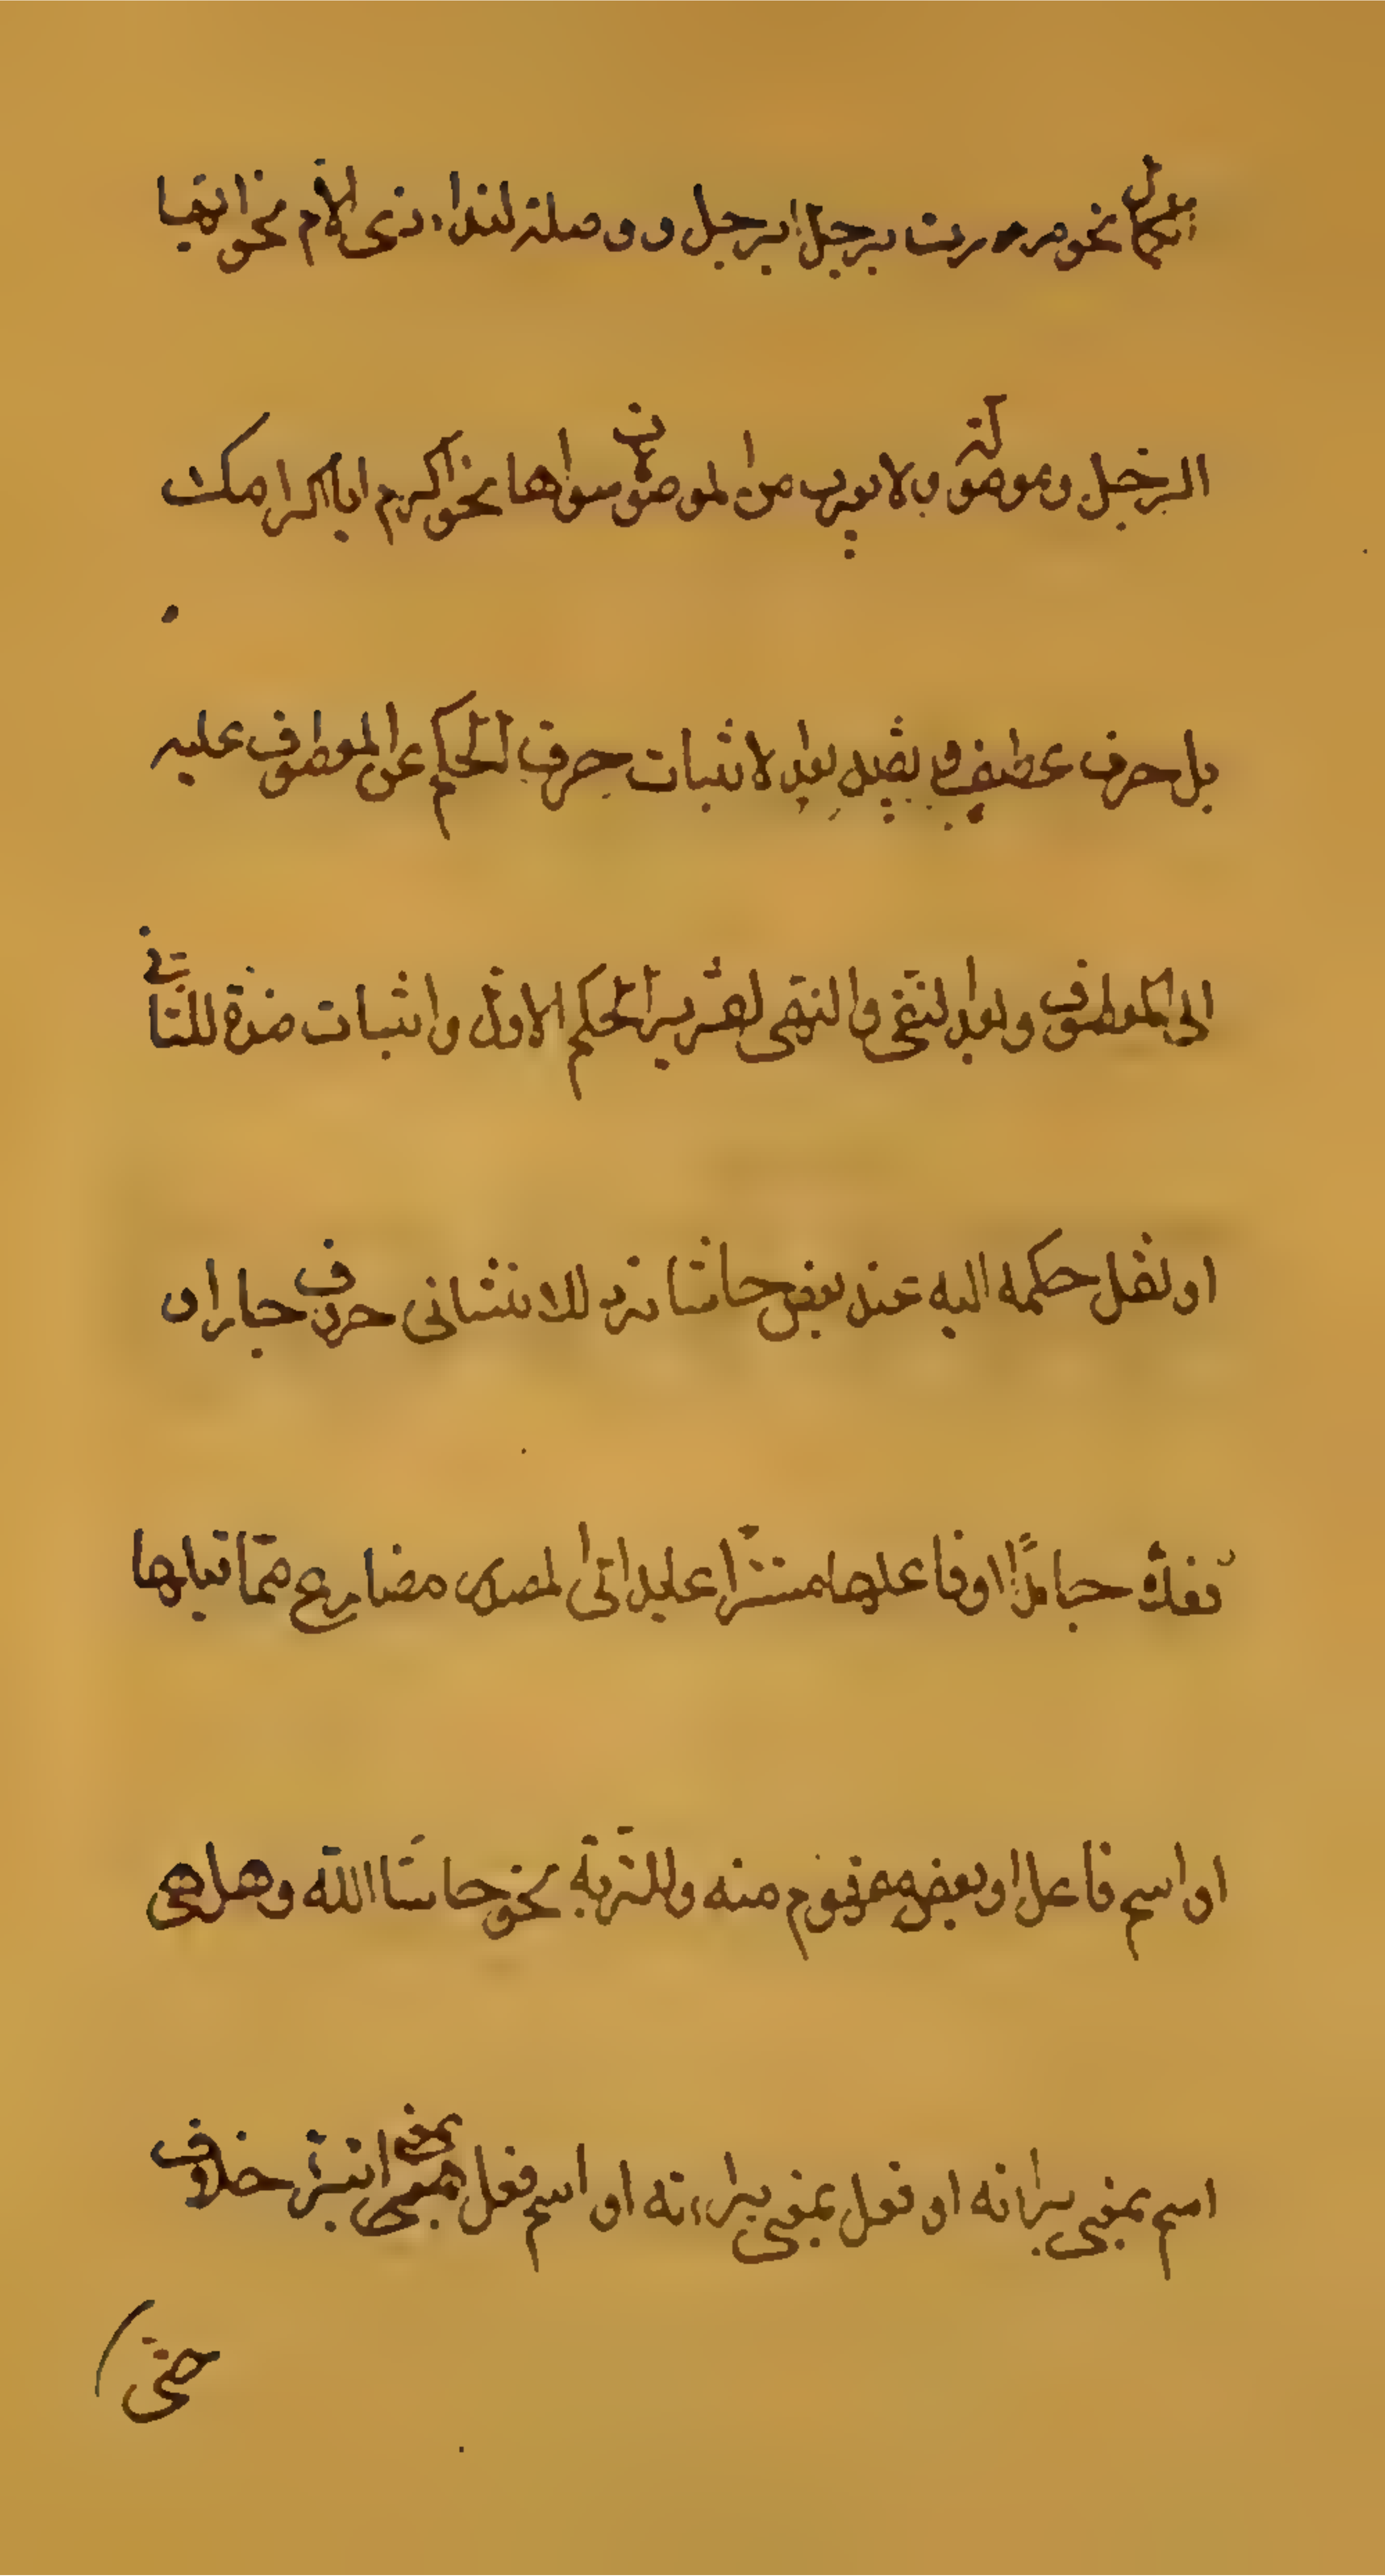 نحو مررت برجل ابرجل ووصلة لنداء ذى الام نحو ايها
الرجل وموصولة ولا يعرب من الموصوف سواها نحو اكرم ايا اكرامك
بل حرف عطف يفيد بعد لاثبات حرف الحكم عن المعطوف عليه
الى المعطوف وبعد لنفى والنهى لتقرير الحكم الاول واثبات ضدة للثانى
او نقل حكمه اليه عند بعض حاشا ترد للاستثنانى حرف جاراو
فعلا جامدا وفاعلها مستترا عليدا تى لمصدر مضارع مما قبلها
او اسم فاعل او بعض مفهوم منه وللتزيه نحو حاشا الله وهل هى
اسم بمعنى براته او فعل بمعنى براءته او اسم فعل بمعنى اتبر خلاف
حتى